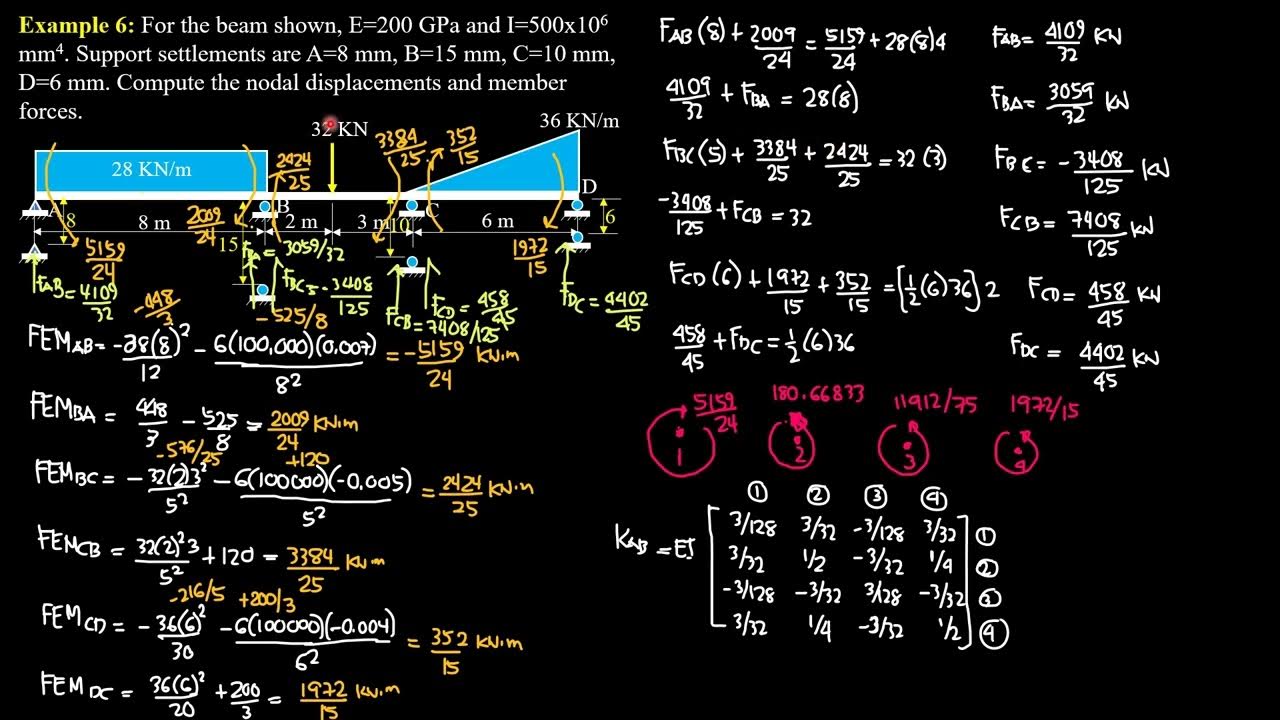 Example 6: For the beam shown, E=200 GPa and I=500x10⁶
mm⁴. Support settlements are A=8 mm, B=15 mm, C=10 mm,
D=6 mm. Compute the nodal displacements and member
forces.
32 KN
36 KN/m
28 KN/m
2424/25
3384/25
352/15
A
B
C
D
8
8 m
2009/24
15
2 m
3 m
10
6 m
6
5159/24
1972/15
F_AB = 4109/32
F_BA = 3059/32
F_BC = -3408/125
F_CB = 7408/125
F_CD = 458/45
F_DC = 4402/45
-448/3
-525/8
FEM_AB = -28(8)²/12 - 6(100,000)(0.007)/8² = -5159/24 KN.m
FEM_BA = 448/3 - 525/8 = 2009/24 KN.m
-576/25
+120
FEM_BC = -32(2)3²/5² - 6(100000)(-0.005)/5² = 2424/25 KN.m
FEM_CB = 32(2)²3/5² + 120 = 3384/25 KN.m
-216/5
+200/3
FEM_CD = -36(6)²/30 - 6(100000)(-0.004)/6² = 352/15 KN.m
FEM_DC = 36(6)²/20 + 200/3 = 1972/15 KN.m
F_AB(8) + 2009/24 = 5159/24 + 28(8)4
F_AB = 4109/32 KN
4109/32 + F_BA = 28(8)
F_BA = 3059/32 KN
F_BC(5) + 3384/25 + 2424/25 = 32(3)
F_BC = -3408/125 KN
-3408/125 + F_CB = 32
F_CB = 7408/125 KN
F_CD(6) + 1972/15 + 352/15 = [1/2(6)36]2
F_CD = 458/45 KN
458/45 + F_DC = 1/2(6)36
F_DC = 4402/45 KN
5159/24
180.66833
11912/75
1972/15
1
2
3
4
① ② ③ ④
K_AB = EI
3/128 3/32 -3/128 3/32 ①
3/32 1/2 -3/32 1/4 ②
-3/128 -3/32 3/128 -3/32 ③
3/32 1/4 -3/32 1/2 ④